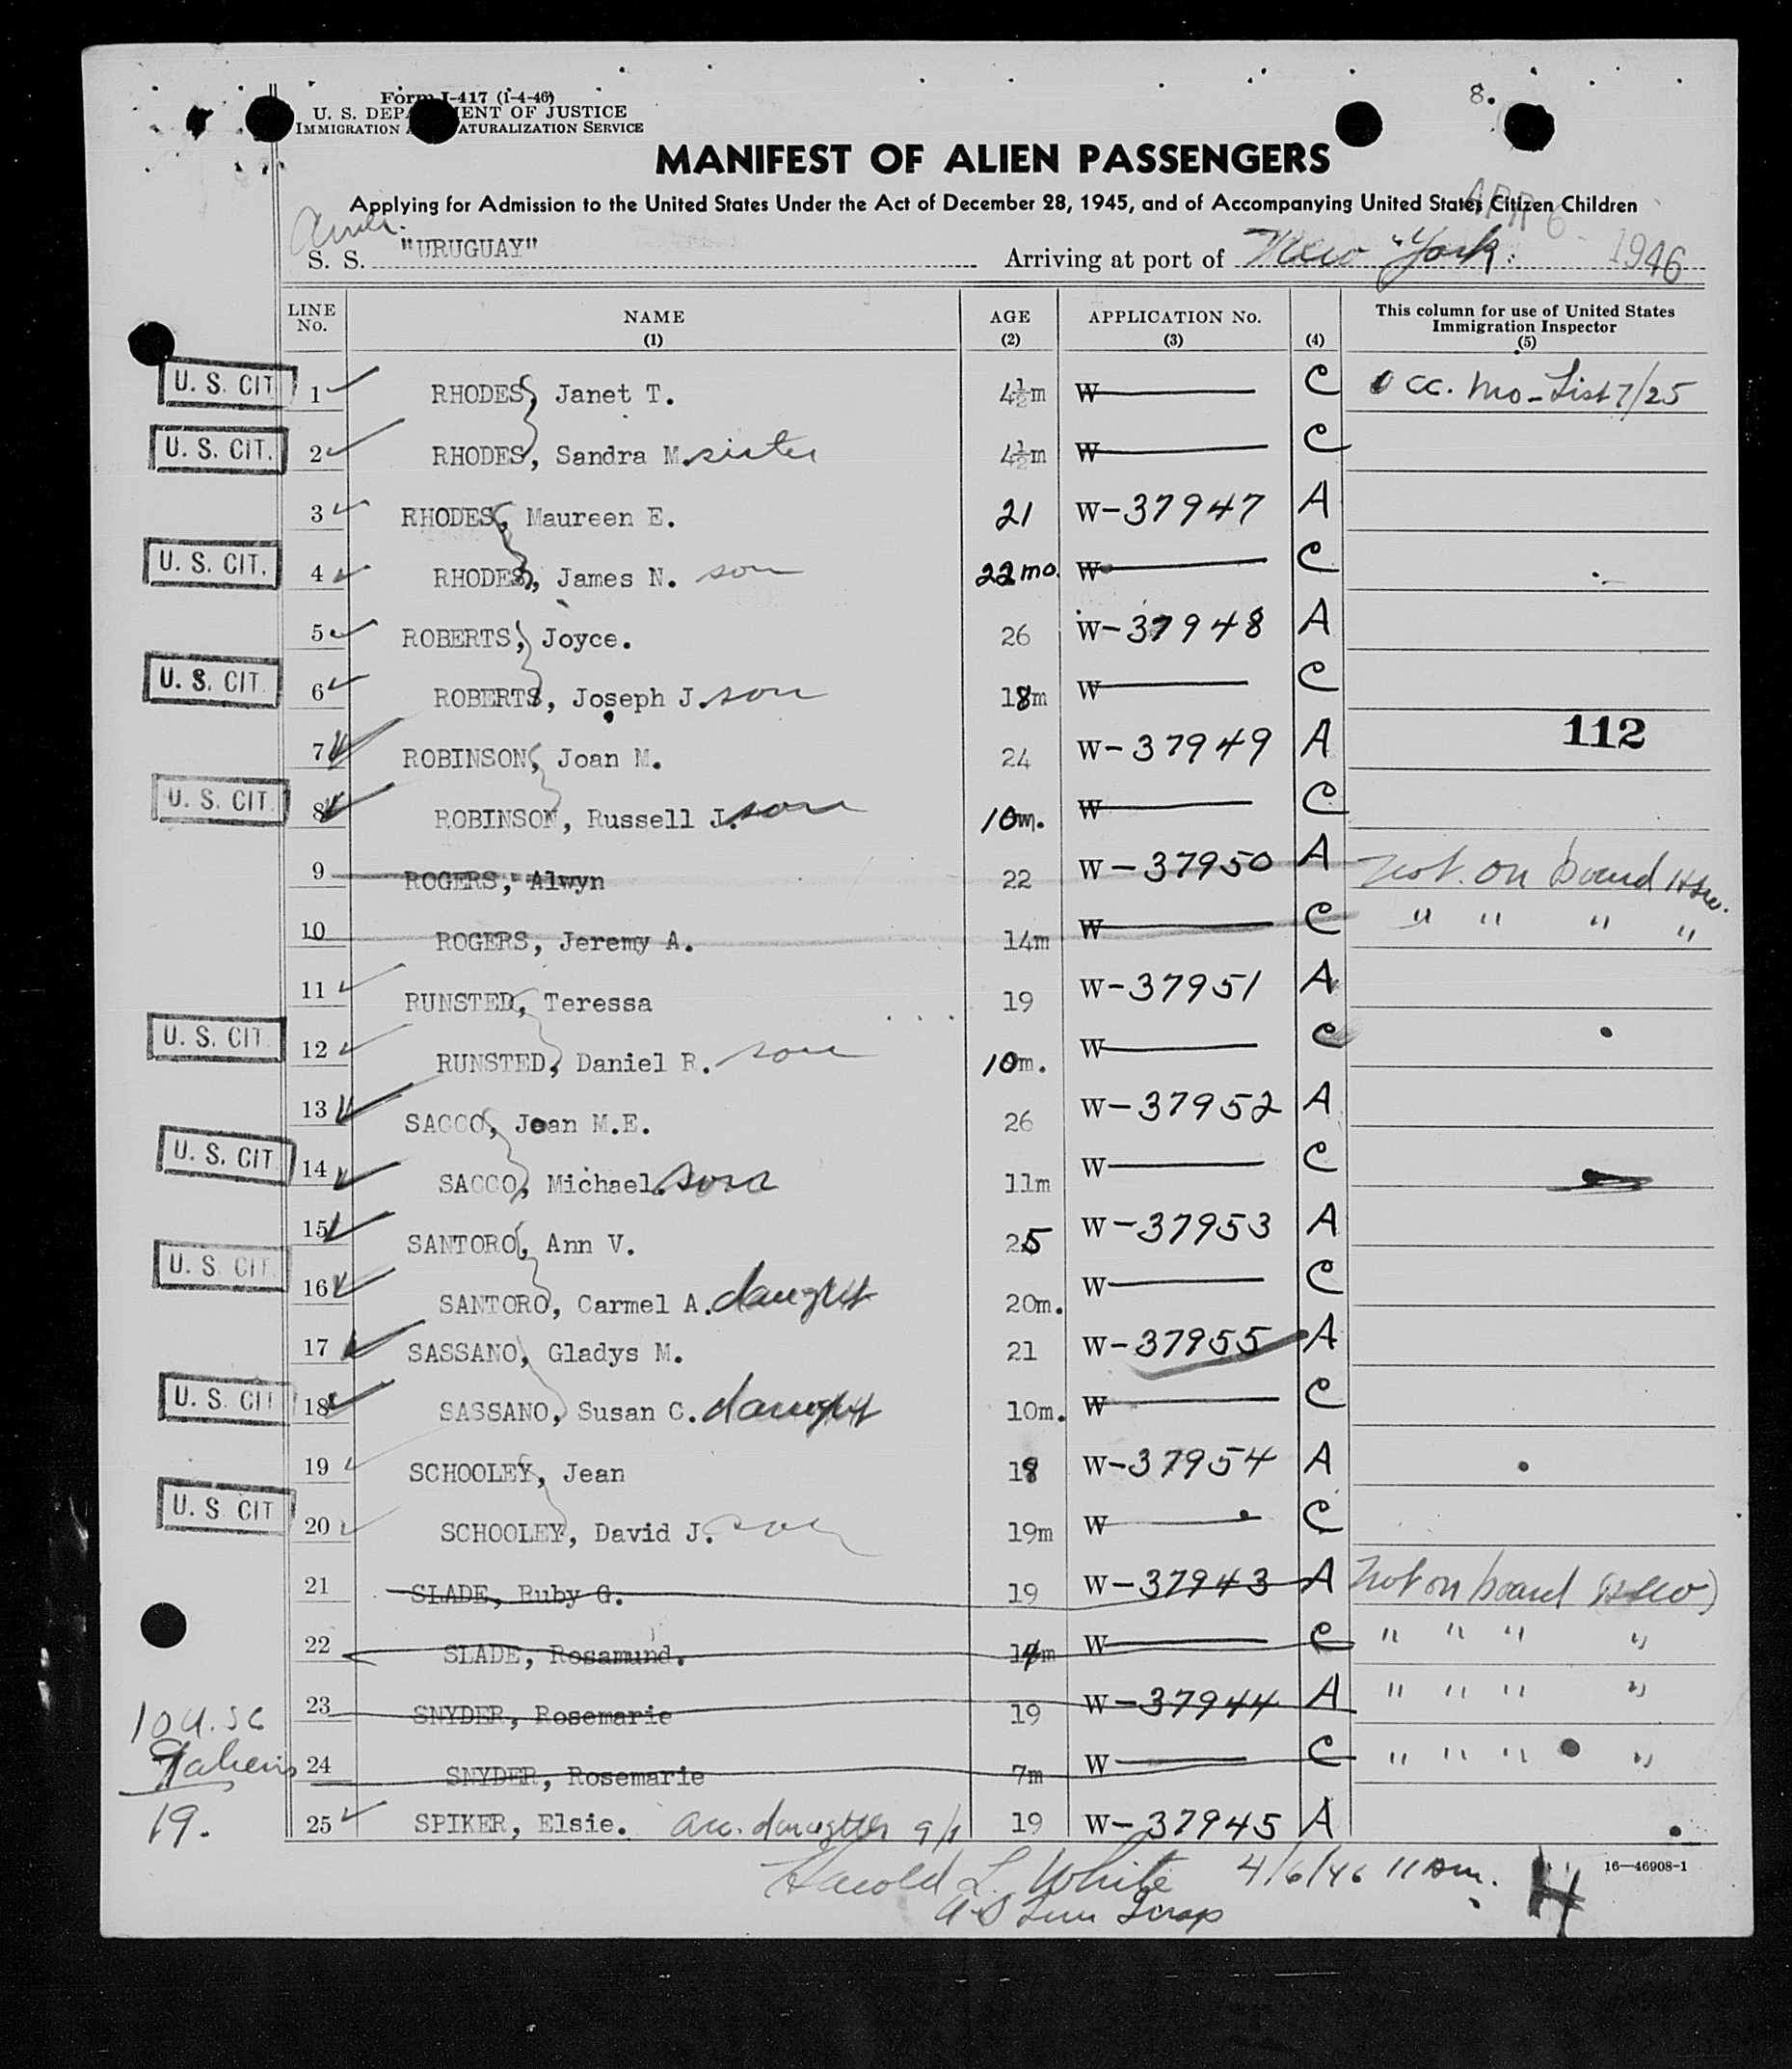 Form I-417 (1-4-46)
U. S. DEPARTMENT OF JUSTICE
IMMIGRATION AND NATURALIZATION SERVICE
8.
MANIFEST OF ALIEN PASSENGERS
Applying for Admission to the United States Under the Act of December 28, 1945, and of Accompanying United States Citizen Children
APR 6 - 1946
Amer.
S. S. "URUGUAY" Arriving at port of New York
LINE No. NAME (1) AGE (2) APPLICATION No. (3) (4) This column for use of United States Immigration Inspector (5)
U. S. CIT 1 RHODES, Janet T. 4½m W C acc. Mo-List 7/25
U. S. CIT. 2 RHODES, Sandra M. sister 4½m W C
3 RHODES, Maureen E. 21 W-37947 A
U. S. CIT. 4 RHODES, James N. son 22mo. W C
5 ROBERTS, Joyce. 26 W-37948 A
U. S. CIT. 6 ROBERTS, Joseph J. son 18m W C
112
7 ROBINSON, Joan M. 24 W-37949 A
U. S. CIT. 8 ROBINSON, Russell J. son 10m. W C
9 ROGERS, Alwyn 22 W-37950 A not on board
10 ROGERS, Jeremy A. 14m W C " " " "
11 RUNSTED, Teressa 19 W-37951 A
U. S. CIT. 12 RUNSTED, Daniel R. son 10m. W C
13 SACCO, Jean M.E. 26 W-37952 A
U. S. CIT 14 SACCO, Michael son 11m W C
15 SANTORO, Ann V. 25 W-37953 A
U. S. CIT. 16 SANTORO, Carmel A. daught 20m. W C
17 SASSANO, Gladys M. 21 W-37955 A
U. S. CIT 18 SASSANO, Susan C. daught 10m. W C
19 SCHOOLEY, Jean W-37954 A
U. S. CIT 20 SCHOOLEY, David J. son 19m W C
21 SLADE, Ruby G. 19 W-37943 A Not on board
22 SLADE, Rosamund. 14m W C " " " "
23 SNYDER, Rosemarie 19 W-37944 A " " " "
24 SNYDER, Rosemarie 7m W C " " " "
25 SPIKER, Elsie. acc. daughter 9/1 19 W-37945 A
10 U.SC
9 aliens
19.
Harold L. White 4/6/46 11 am.
16—46908-1